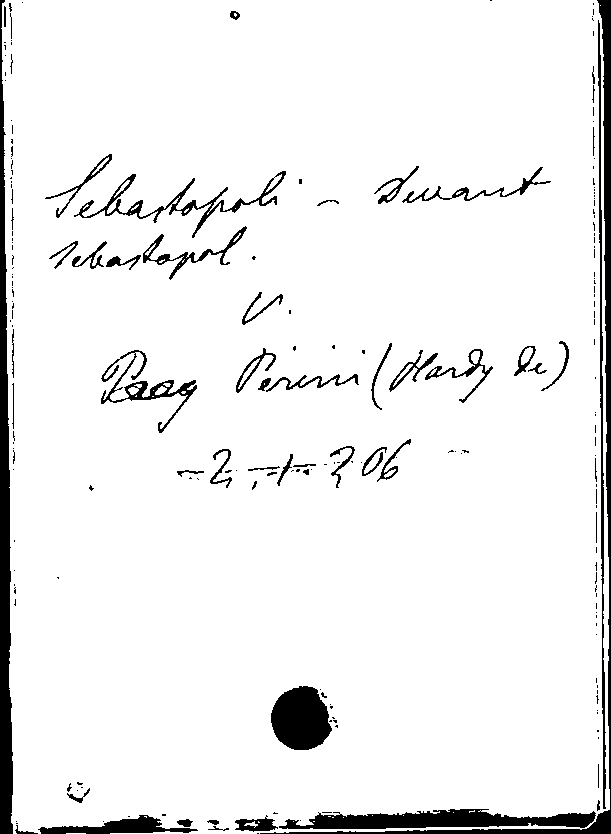 Sebastopoli - Devant
Sebastopol.
V.
Périni (Hardy de)
206